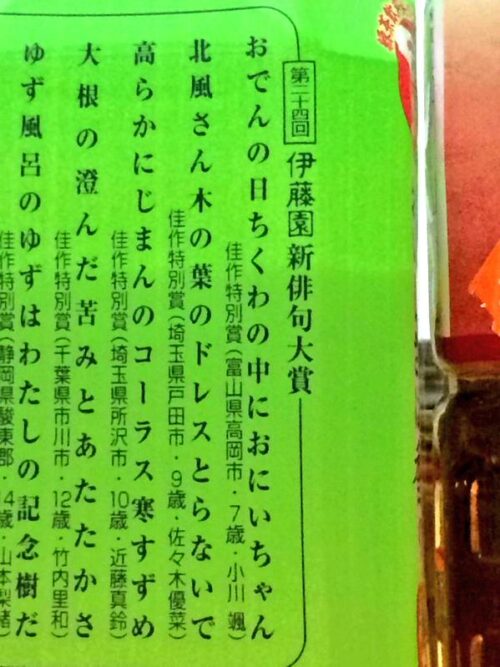 第二十四回 伊藤園 新俳句大賞
おでんの日ちくわの中におにいちゃん
佳作特別賞(富山県高岡市・7歳・小川 颯)
北風さん木の葉のドレスとらないで
佳作特別賞(埼玉県戸田市・9歳・佐々木優菜)
高らかにじまんのコーラス寒すずめ
佳作特別賞(埼玉県所沢市・10歳・近藤真鈴)
大根の澄んだ苦みとあたたかさ
佳作特別賞(千葉県市川市・12歳・竹内里和)
ゆず風呂のゆずはわたしの記念樹だ
佳作特別賞(静岡県駿東郡・14歳・山本梨緒)